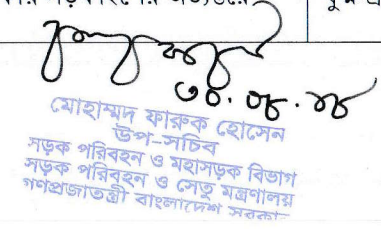 ৩০.০৮.
মোহাম্মদ ফারুক হোসেন
উপ-সচিব
সড়ক পরিবহন ও মহাসড়ক বিভাগ
সড়ক পরিবহন ও সেতু মন্ত্রণালয়
গণপ্রজাতন্ত্রী বাংলাদেশ সরকার